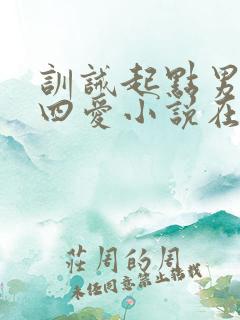 訓誡起點男
四愛小說在
莊周的周
未經同意禁止轉載